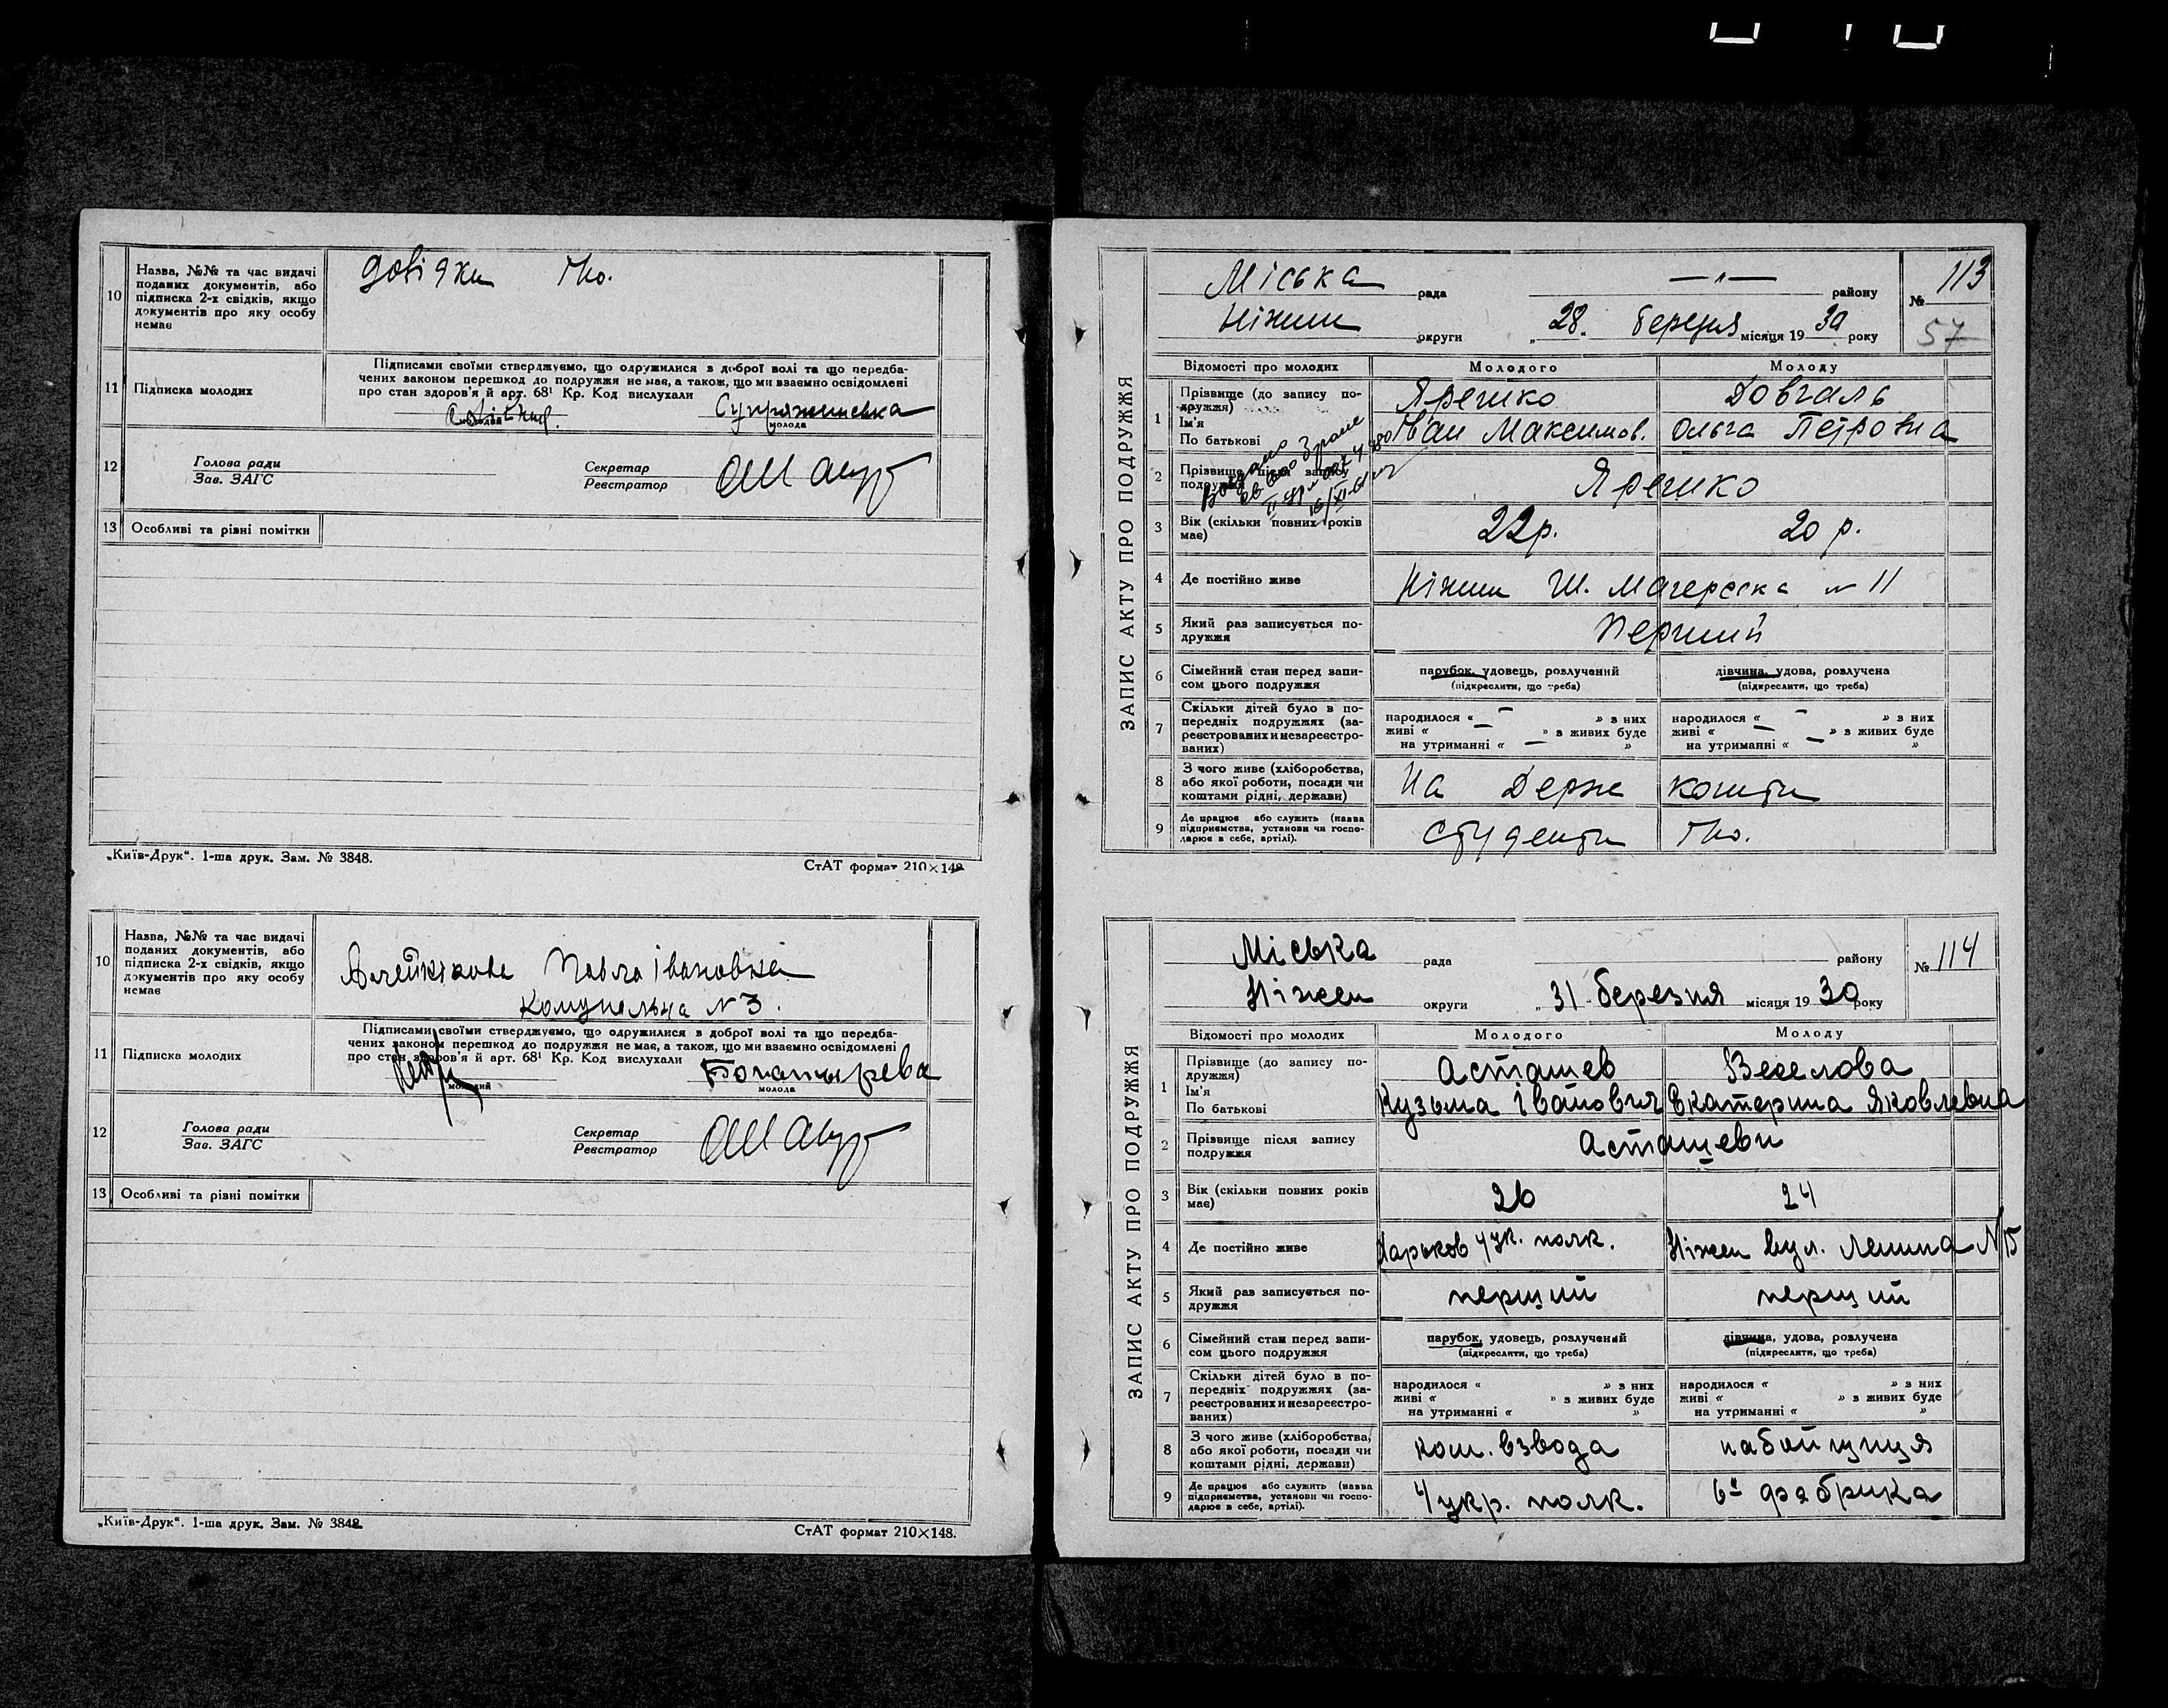 10 Назва, №№ та час видачі поданих документів, або підписка 2-х свідків, якщо документів про яку особу немає
довідки ІНО.
11 Підписка молодих
Підписами своїми стверджуємо, що одружилися з доброї волі та що передба-
чених законом перешкод до подружжя не має, а також, що ми взаємно освідомлені
про стан здоров'я й арт. 68¹ Кр. Код вислухали
молодий
молода
12 Голова ради
Зав. ЗАГС
Секретар
Реєстратор
13 Особливі та різні помітки
„Київ-Друк“. 1-ша друк. Зам. № 3848.
СтАТ формат 210×148
10 Назва, №№ та час видачі поданих документів, або підписка 2-х свідків, якщо документів про яку особу немає
Івановна
№ 3.
11 Підписка молодих
Підписами своїми стверджуємо, що одружилися з доброї волі та що передба-
чених законом перешкод до подружжя не має, а також, що ми взаємно освідомлені
про стан здоров'я й арт. 68¹ Кр. Код вислухали
молодий
молода
12 Голова ради
Зав. ЗАГС
Секретар
Реєстратор
13 Особливі та різні помітки
„Київ-Друк“. 1-ша друк. Зам. № 3848
СтАТ формат 210×148.
ЗАПИС АКТУ ПРО ПОДРУЖЖЯ
Міська рада району № 113
Ніжин округи „28. березня місяця 1930 року
57
Відомості про молодих Молодого Молоду
1 Прізвище (до запису подружжя) Ярешко Довгаль
Ім'я По батькові Іван Максимов. Ольга Петровна
2 Прізвище після запису подружжя Ярешко
3 Вік (скільки повних років має) 22р. 20 р.
4 Де постійно живе Ніжин Ш. №11
5 Який раз записується подружжя Перший
6 Сімейний стан перед записом цього подружжя парубок, удовець, розлучений дівчина, удова, розлучена
(підкреслити, що треба) (підкреслити, що треба)
7 Скільки дітей було в попередніх подружжях (зареєстрованих и незареєстрованих)
народилося « — » з них народилося « — » з них
живі « — » з живих буде живі « — » з живих буде
на утриманні « — » на утриманні « — »
8 З чого живе (хліборобства, або якої роботи, посади чи коштами рідні, держави) На Держ кошти
9 Де працює або служить (назва підприємства, установи чи господарює в себе, артілі). Студенти ІНО.
ЗАПИС АКТУ ПРО ПОДРУЖЖЯ
Міська рада району № 114
Ніжен округи „31 березня місяця 1930 року
Відомості про молодих Молодого Молоду
1 Прізвище (до запису подружжя) Асташев Веселова
Ім'я По батькові Кузьма Іванович Екатерина Яковлевна
2 Прізвище після запису подружжя Асташеви
3 Вік (скільки повних років має) 26 24
4 Де постійно живе Харьков 4 ук. полк. Ніжен вул. Ленина №15
5 Який раз записується подружжя перший перший
6 Сімейний стан перед записом цього подружжя парубок, удовець, розлучений дівчина, удова, розлучена
(підкреслити, що треба) (підкреслити, що треба)
7 Скільки дітей було в попередніх подружжях (зареєстрованих и незареєстрованих)
народилося « » з них народилося « » з них
живі « » з живих буде живі « » з живих буде
на утриманні « » на утриманні « »
8 З чого живе (хліборобства, або якої роботи, посади чи коштами рідні, держави) ком. взвода набойщиця
9 Де працює або служить (назва підприємства, установи чи господарює в себе, артілі). 4 укр. полк. фабрика